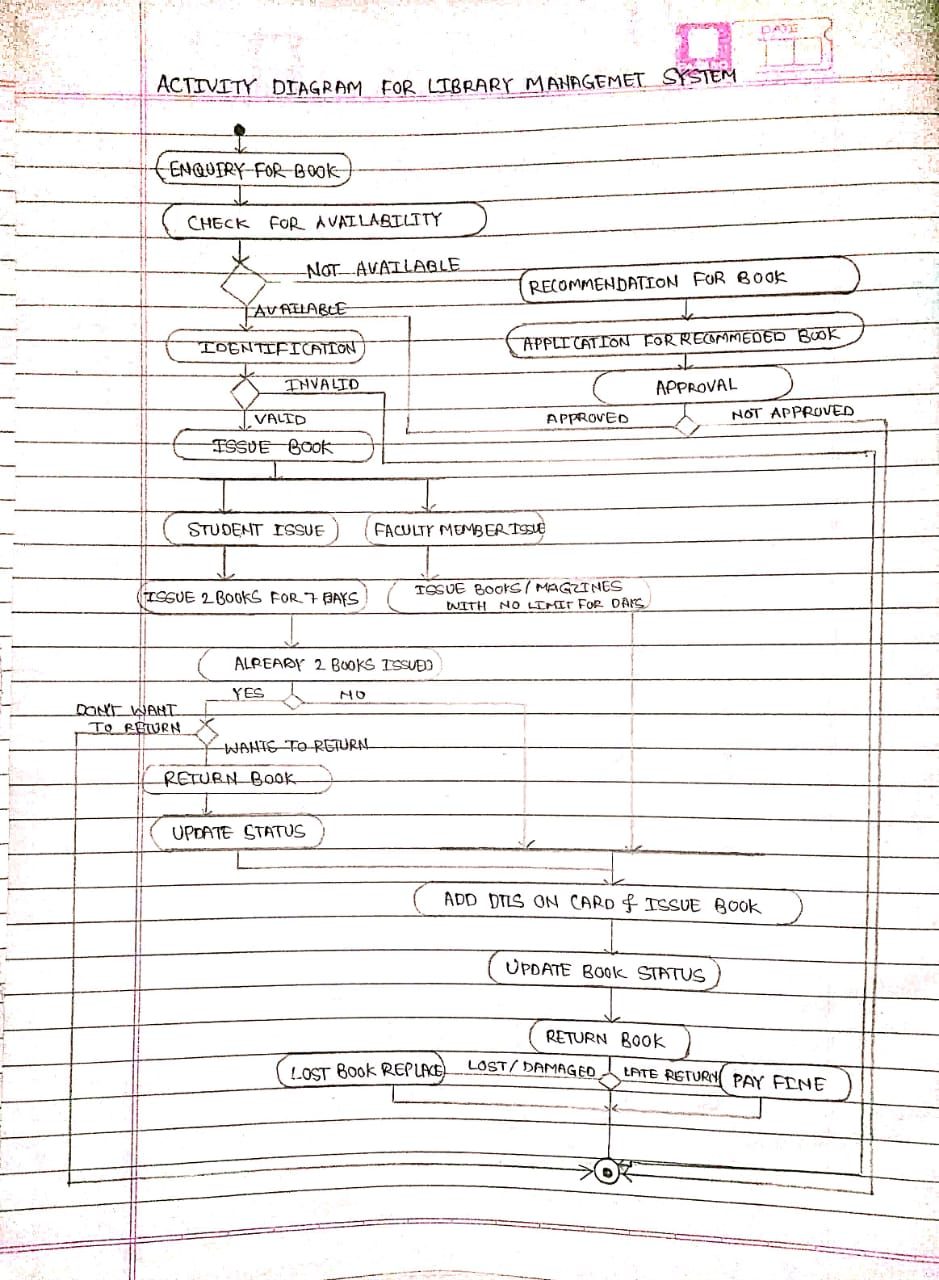 DATE
ACTIVITY DIAGRAM FOR LIBRARY MANAGEMET SYSTEM
ENQUIRY FOR BOOK
CHECK FOR AVAILABILITY
NOT AVAILABLE
RECOMMENDATION FOR BOOK
AVAILABLE
IDENTIFICATION
APPLICATION FOR RECOMMEDED BOOK
INVALID
APPROVAL
VALID
APPROVED
NOT APPROVED
ISSUE BOOK
STUDENT ISSUE
FACULTY MEMBER ISSUE
ISSUE 2 BOOKS FOR 7 DAYS
ISSUE BOOKS/MAGZINES
WITH NO LIMIT FOR DAYS
ALREADY 2 BOOKS ISSUED
YES
NO
DON'T WANT
TO RETURN
WANTS TO RETURN
RETURN BOOK
UPDATE STATUS
ADD DTLS ON CARD & ISSUE BOOK
UPDATE BOOK STATUS
RETURN BOOK
LOST BOOK REPLACE
LOST/DAMAGED
LATE RETURN
PAY FINE